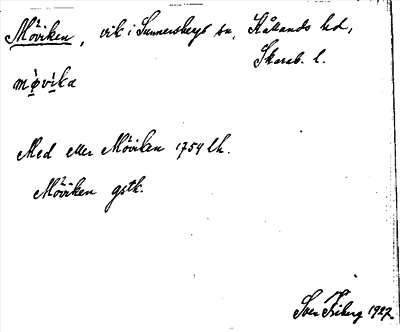 Möviken, vik i Sunnersbergs sn, Kållands hd,
Skarab. l.
mö̀vìka
Med eller Möviken 1754 lh.
Möviken gstk.
Sven Friberg 1927.